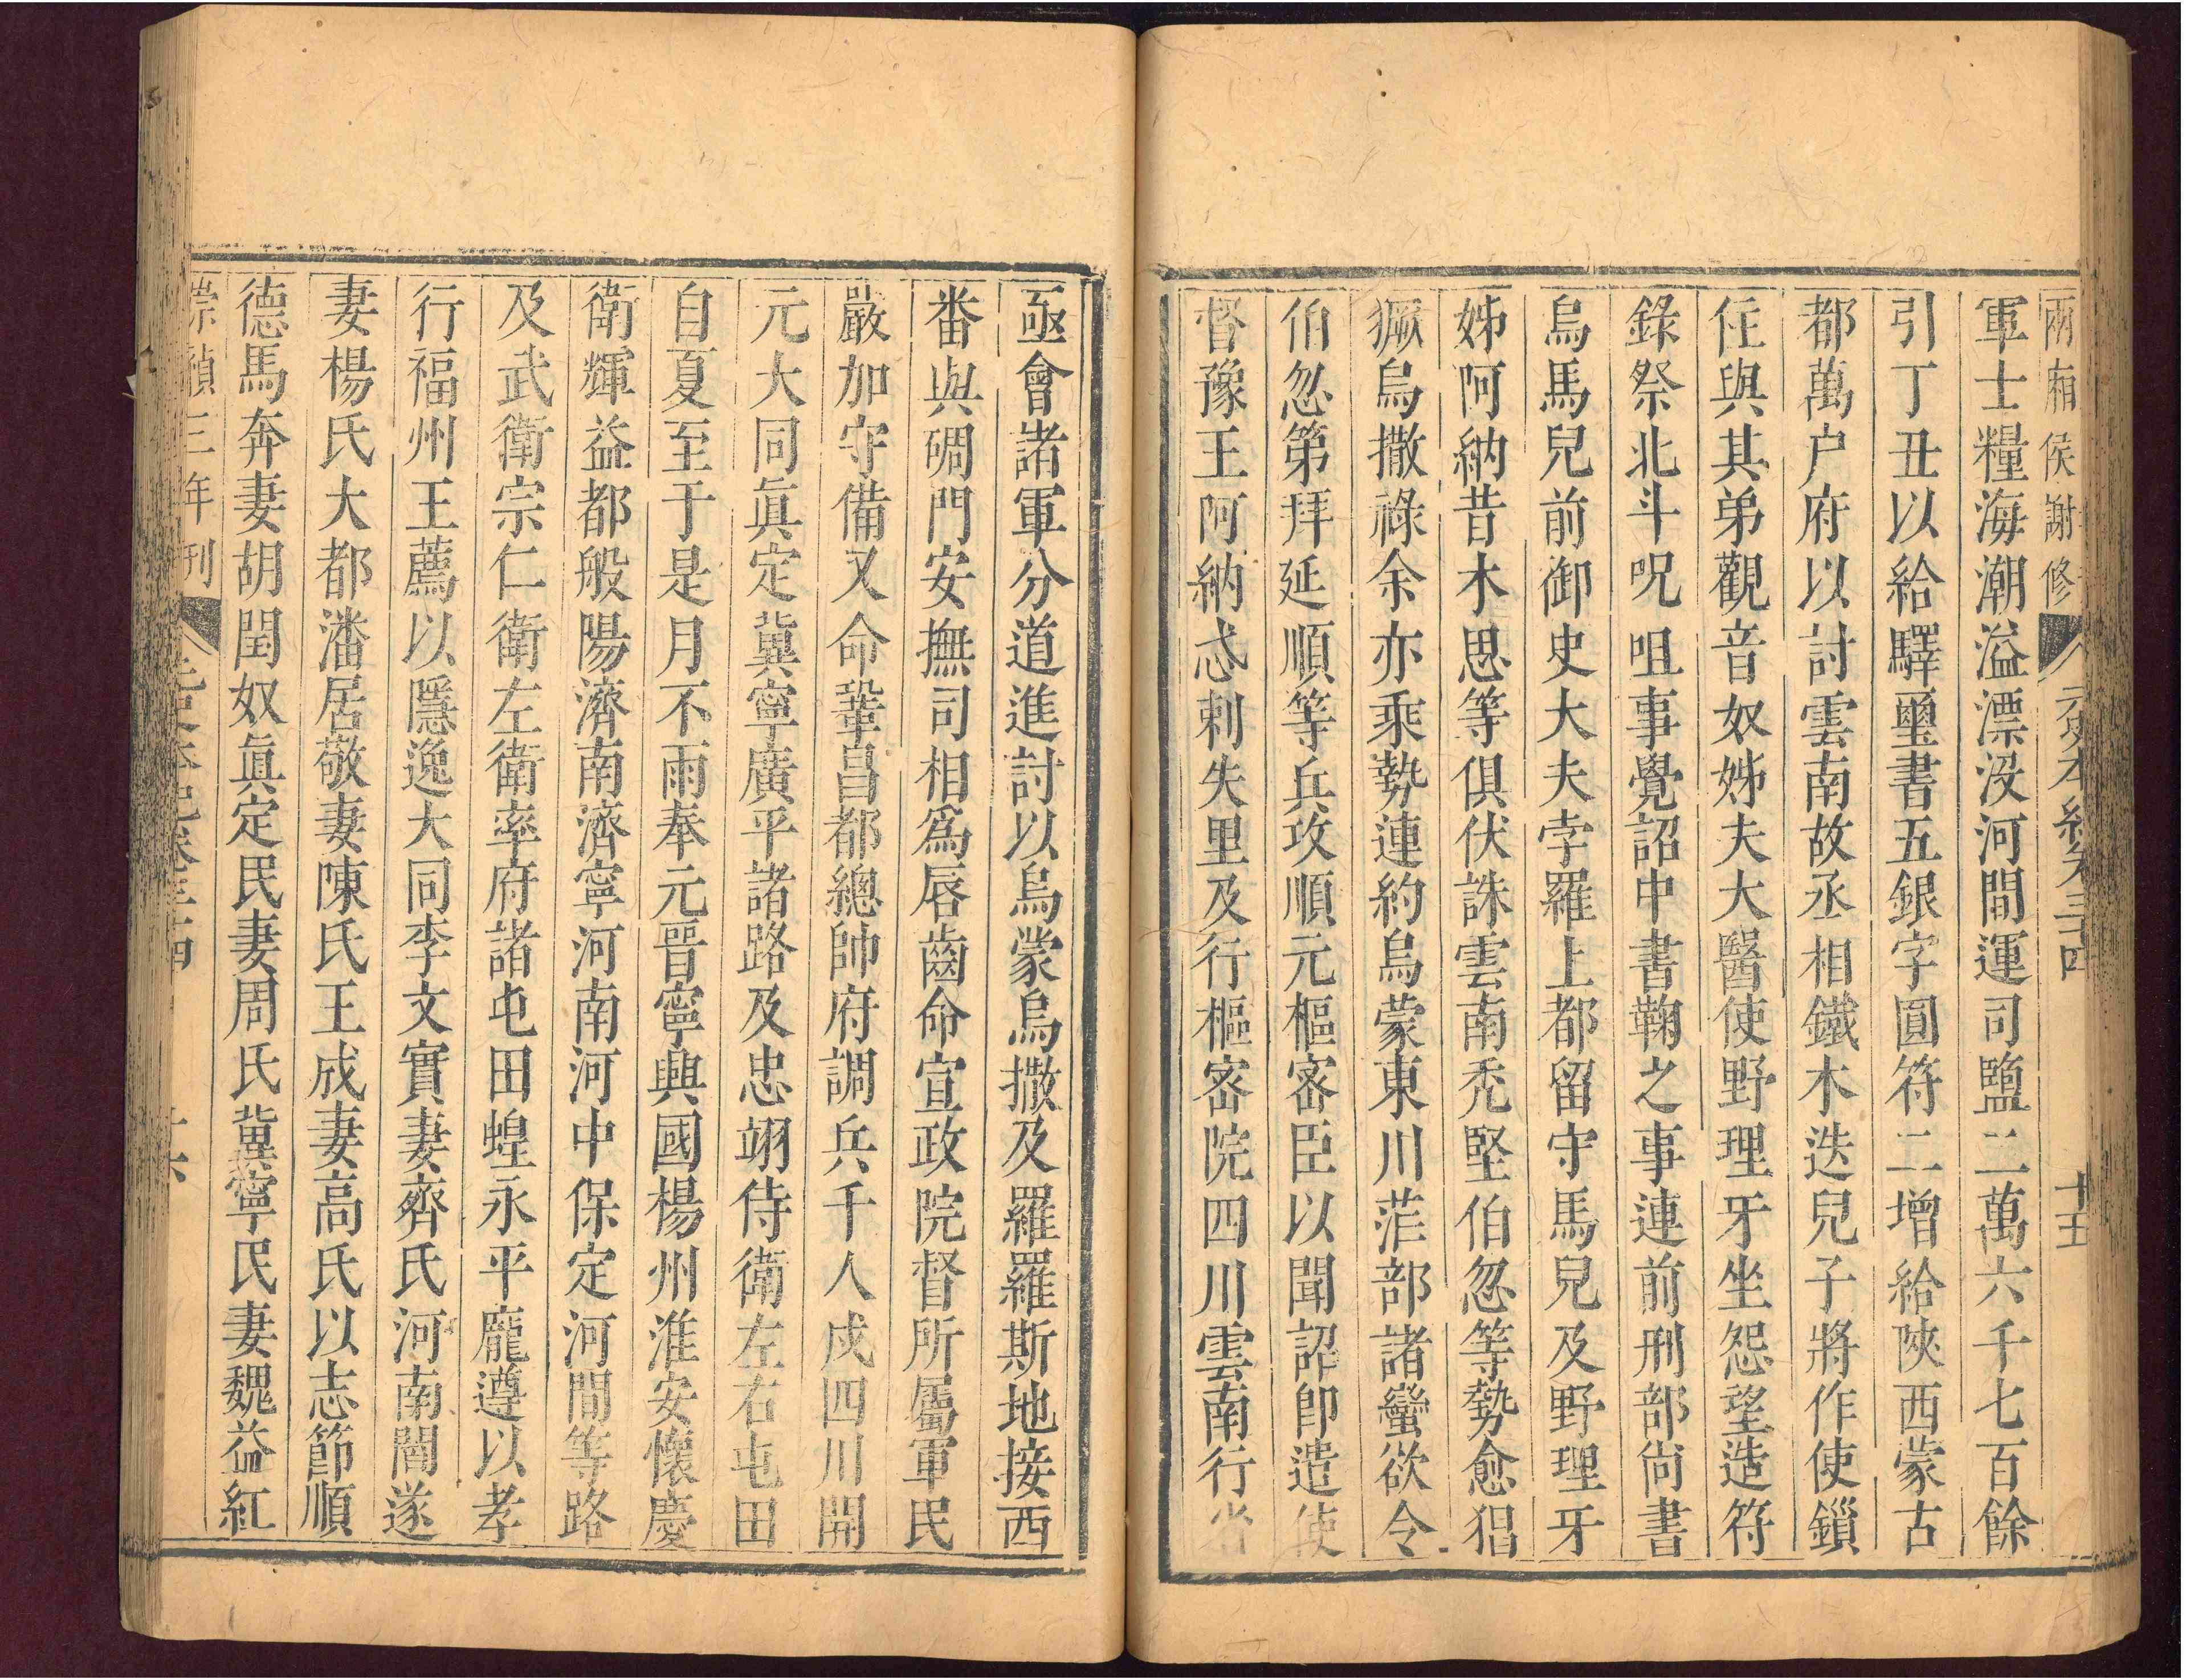 兩廂侯謝修
元史本紀卷三十四
十五
軍士糧海潮溢漂没河間運司鹽二萬六千七百餘
引丁丑以給驛璽書五銀字圓符二增給陝西蒙古
都萬户府以討雲南故丞相鐵木迭兒子將作使鎖
住與其弟觀音奴姊夫大醫使野理牙坐怨望造符
錄祭北斗呪咀事覺詔中書鞠之事連前刑部尚書
烏馬兒前御史大夫孛羅上都留守馬兒及野理牙
姊阿納昔木思等俱伏誅雲南秃堅伯忽等勢愈猖
獗烏撒祿余亦乘勢連約烏蒙東川茫部諸蠻欲令
伯忽第拜延順等兵攻順元樞密臣以聞詔即遣使
督豫王阿納忒剌失里及行樞密院四川雲南行省
亟會諸軍分道進討以烏蒙烏撒及羅羅斯地接西
番與碉門安撫司相爲唇齒命宣政院督所屬軍民
嚴加守備又命鞏昌都總帥府調兵千人戍四川開
元大同眞定冀寧廣平諸路及忠翊侍衛左右屯田
自夏至于是月不雨奉元晉寧興國楊州淮安懷慶
衛輝益都般陽濟南濟寧河南河中保定河間等路
及武衛宗仁衛左衛率府諸屯田蝗永平龐遵以孝
行福州王薦以隱逸大同李文實妻齊氏河南閻遂
妻楊氏大都潘居敬妻陳氏王成妻高氏以志節順
德馬奔妻胡閏奴眞定民妻周氏冀寧民妻魏益紅
崇禎三年刊
元史本紀卷三十四
十六